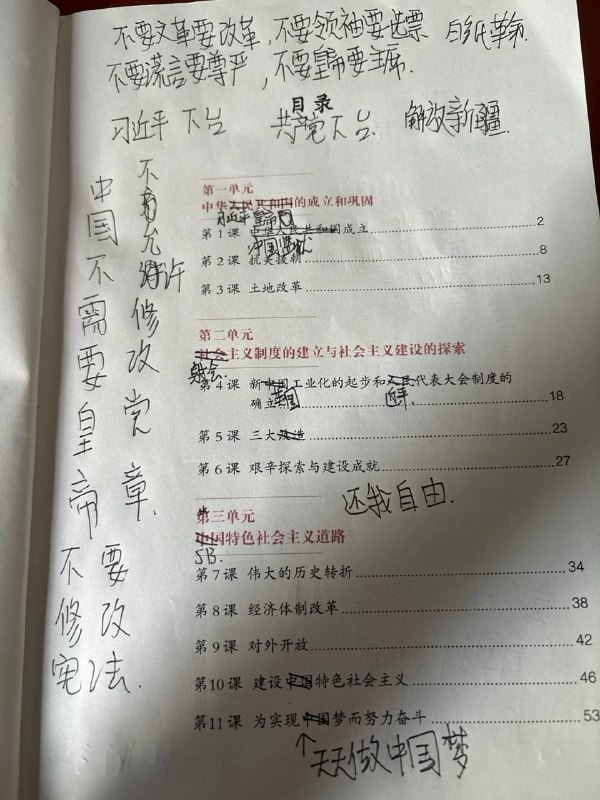 不要文革要改革,不要领袖要选票 白纸革命
不要谎言要尊严,不要皇帝要主席.
目录
习近平 下台 共产党下台. 解放新疆.
中国不需要皇帝
不允许修改党章.
不要
修改
宪法.
第一单元
中华人民共和国的成立和巩固
习近平皇帝国
第1课 中华人民共和国成立 2
第2课 抗美援朝 8
第3课 土地改革 13
第二单元
社会主义制度的建立与社会主义建设的探索
第4课 新中国工业化的起步和人民代表大会制度的
确立 18
近平
第5课 三大改造 23
第6课 艰辛探索与建设成就 27
还我自由.
第三单元
中国特色社会主义道路
SB.
第7课 伟大的历史转折 34
第8课 经济体制改革 38
第9课 对外开放 42
第10课 建设中国特色社会主义 46
第11课 为实现中国梦而努力奋斗 53
↑天天做中国梦